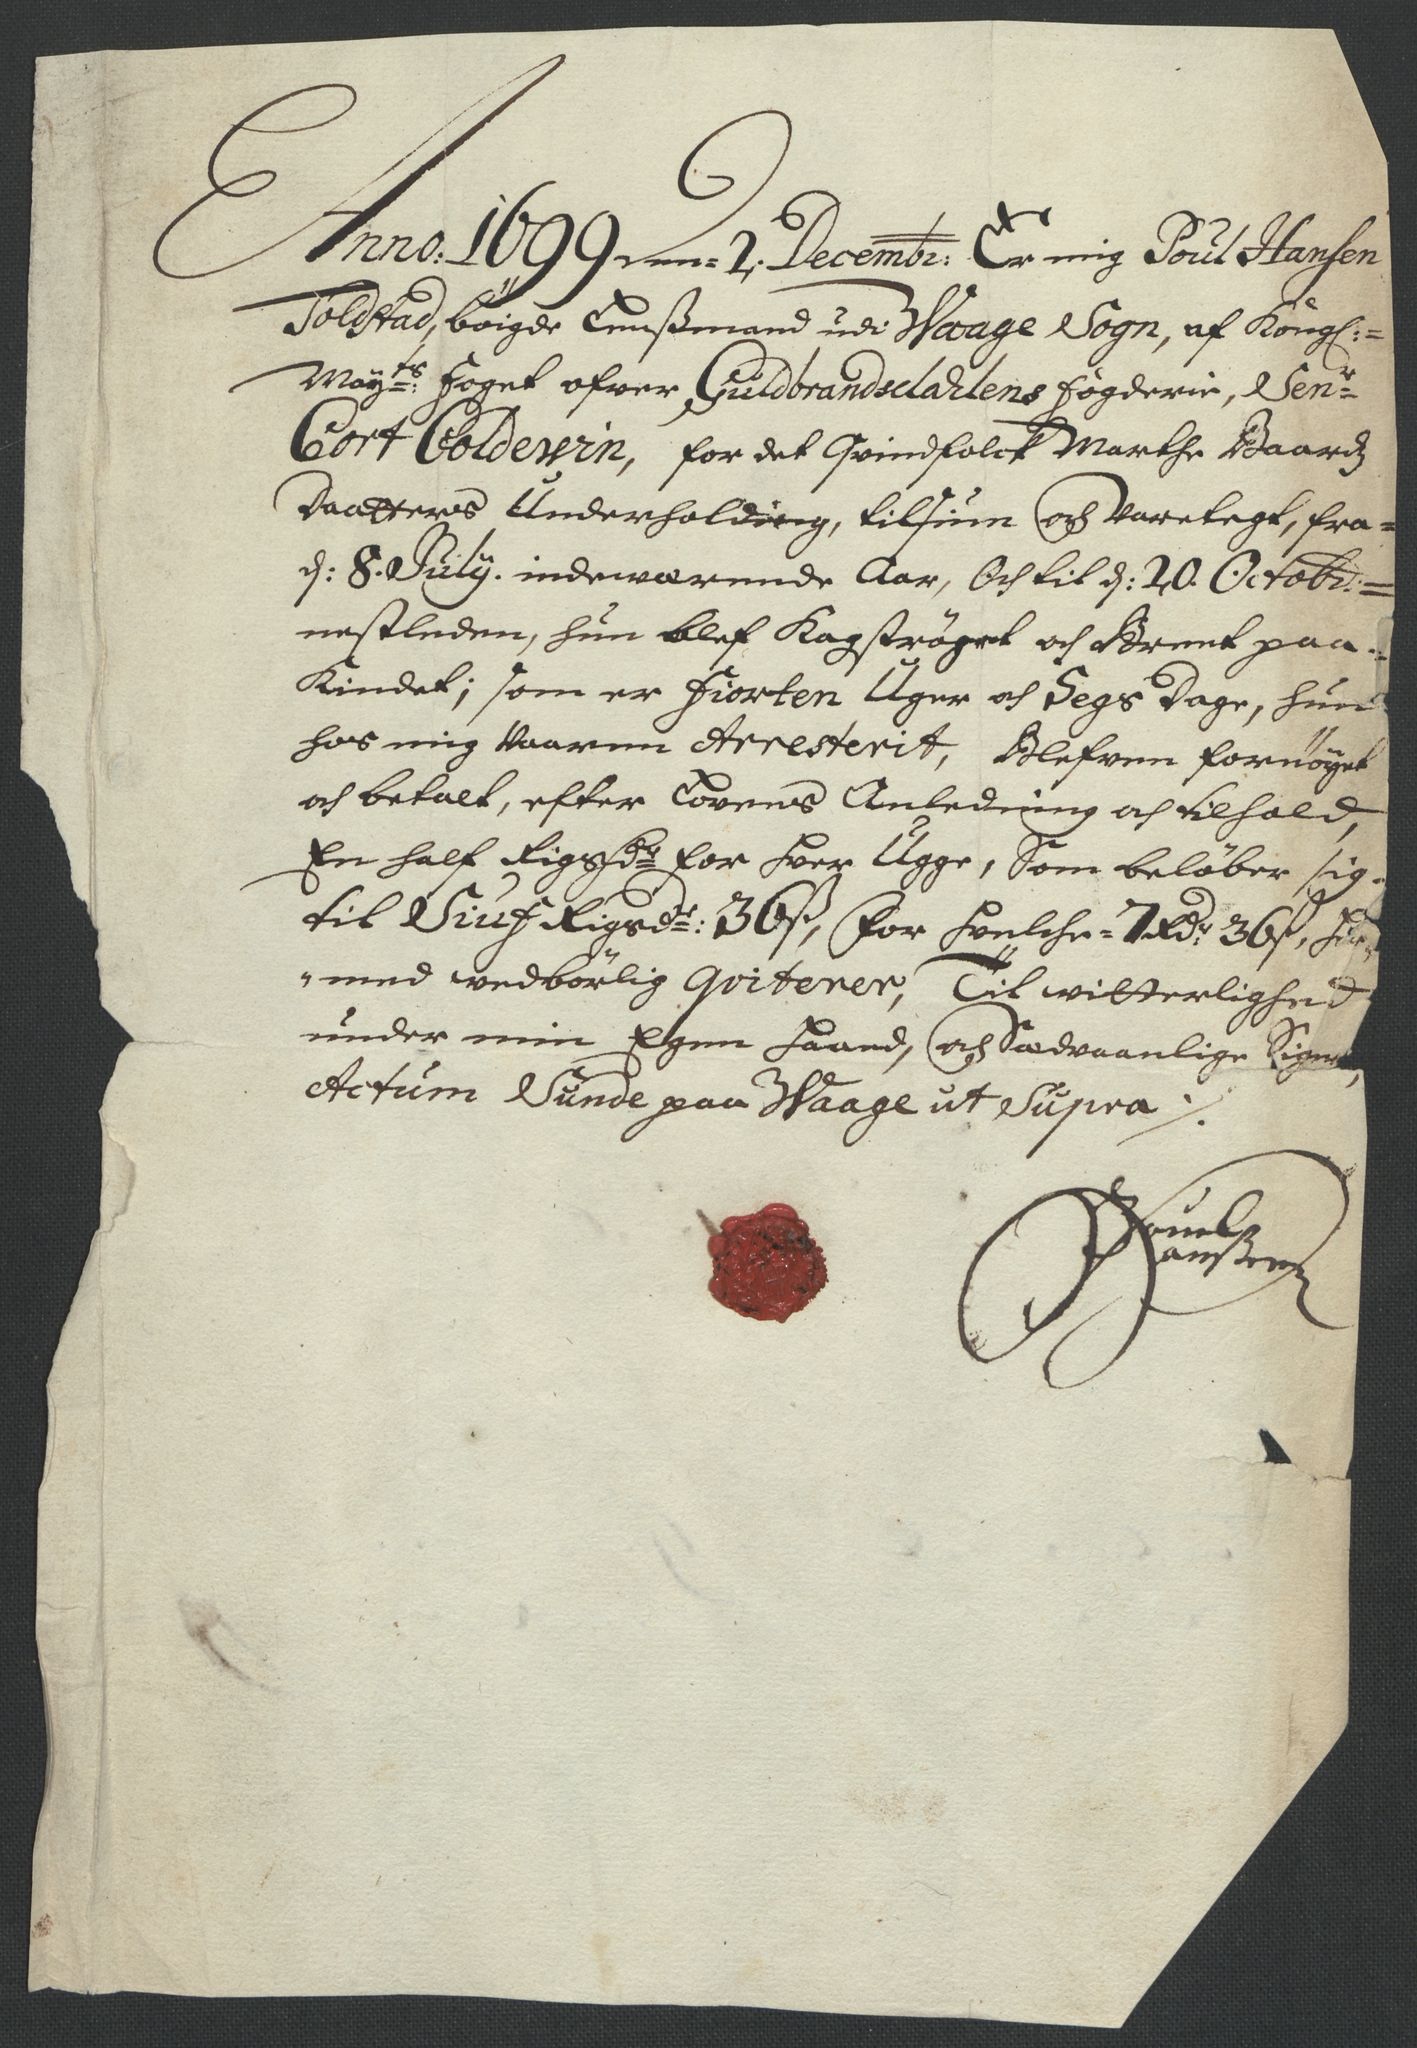 Anno: 1699 den= 2. Decembr: Er mig Poul Hansen
Toldstad, böigde Lensmand udi Waage Sogn, af Kongl:=
Mayts: Foget ofver Guldbrandsdahlens fögderie, Senr
Cort Coldewin, for det Qvindfolck Marthe Baards
Daatters Underholding, tilsiun och varetegt, fra=
d: 8. July. indeværende Aar, Och til d: 20. Octobr:=
nestleden, hun blef Kagströget och Brent paa
Kindet; som er Fiorten Uger och Segs Dage, hun
hos mig Vaaren Arresterit, Blefven fornöyet
och betalt, efter Lovens Anledning och tilhold,
En half Rigsdr for hver Ugge, Som belöber sig
til Siuf Rigsdr: 36ß, for hvilche= 7 Rdr 36ß, hier
med vedbörlig qviterer, Til vitterlighed
under min Egen Haand, och Sædvaanlige Signet,
Actum Sunde paa Waage ut Supra ./.
Pouel
Hanßen